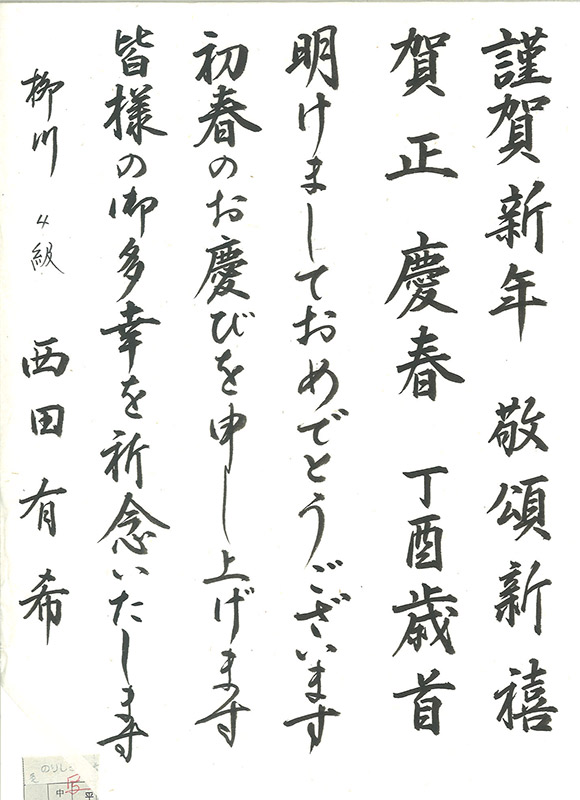 謹賀新年　敬頌新禧
賀正　慶春　丁酉歳首
明けましておめでとうございます
初春のお慶びを申し上げます
皆様の御多幸を祈念いたします
柳川　4級　西田有希
のりし
中
平